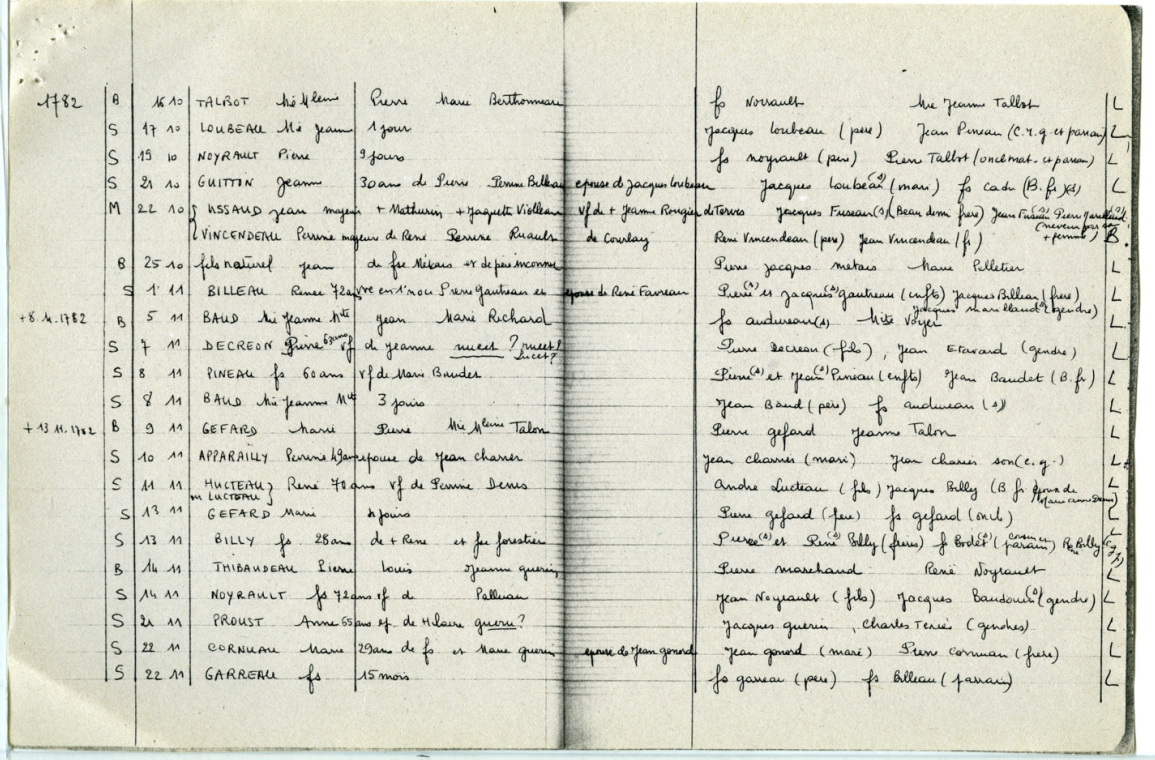 1782 B 16 10 TALBOT Mie Mleine Pierre Marie Berthonneau fs Noyrault Mie Jeanne Talbot L
S 17 10 LOUBEAU Mie Jeanne 1 jour Jacques Loubeau (père) Jean Pineau (c.r.g. et parrain) L
S 19 10 NOYRAULT Pierre 9 jours fs noyrault (père) Pierre Talbot (oncl mat. et parrain) L
S 21 10 GUITTON Jeanne 30 ans de Pierre Perrine Billeau epouse de Jacques loubeau Jacques Loubeau (s) (mari) fs cadu (B.fr)(s) L
M 22 10 { USSAUD Jean majeur + Mathurin + Jaquette Violleau vf de + Jeanne Rougier de Terves Jacques Fuseau(s) (Beau demi frère) Jean Fuseau Pierre
VINCENDEAU Perrine majeure de René Perrine Ruault de Courlay René Vincendeau (père) Jean Vincendeau (fr) (neveux par sa + femme) B.
B 25 10 fils naturel Jean de fse Métais et de père inconnu Pierre Jacques metais Marie Pelletier L
S 1 11 BILLEAU Renée 72 ans vve en 1° noce Pierre Gautreau et epouse de René Favreau Pierre(s) et Jacques(s) gautreau (enfts) Jacques Billeau (frère) L
Jacques marillaud(s) (gendre)
+8.11.1782 B 5 11 BAUD Mie Jeanne Mte Jean Marie Richard fs audureau(s) Mite Voyer L
S 7 11 DECREON Pierre 63 ans vf de Jeanne nucet ? nucet? Lucet? Pierre Decreon (fils), Jean Etavard (gendre) L
S 8 11 PINEAU fs 60 ans vf de Marie Baudet Pierre(s) et Jean(s) Pineau (enfts) Jean Baudet (B.fr) L
S 8 11 BAUD Mie Jeanne Mte 3 jours Jean Baud (père) fs audureau (s) L
+13.11.1782 B 9 11 GEFARD Marie Pierre Mie Mleine Talon Pierre gefard Jeanne Talon L
S 10 11 APPARAILLY Perrine 49 ans epouse de Jean Charrier Jean charrier (mari) Jean charier son (c.g.) L
S 11 11 HUCTEAU } René 70 ans vf de Perrine Denis André Lucteau (fils) Jacques Billy (B fr epoux de L
ou LUCTEAU } Marie anne Denis)
S 13 11 GEFARD Marie 4 jours Pierre gefard (père) fs gefard (oncle) L
S 13 11 BILLY fs 28 ans de + René et fse forestier Pierre(s) et René(s) Billy (frères) f Bodet(s) (cousin parrain) René Billy (c.g.) L
B 14 11 THIBAUDEAU Pierre Louis Jeanne guerin Pierre marchand René Noyrault L
S 14 11 NOYRAULT fs 72 ans vf de Pelleau Jean Noyrault (fils) Jacques Baudouin(s) (gendre) L
S 21 11 PROUST Anne 65 ans ep. de Hilaire guerin? Jacques guerin, Charles Texiés (gendres) L
S 22 11 CORNUAU Marie 29 ans de fs et Marie guerin epouse de Jean gonord Jean gonord (mari) Pierre Cornuau (frère) L
S 22 11 GARREAU fs 15 mois fs garreau (père) fs Billeau (parrain) L